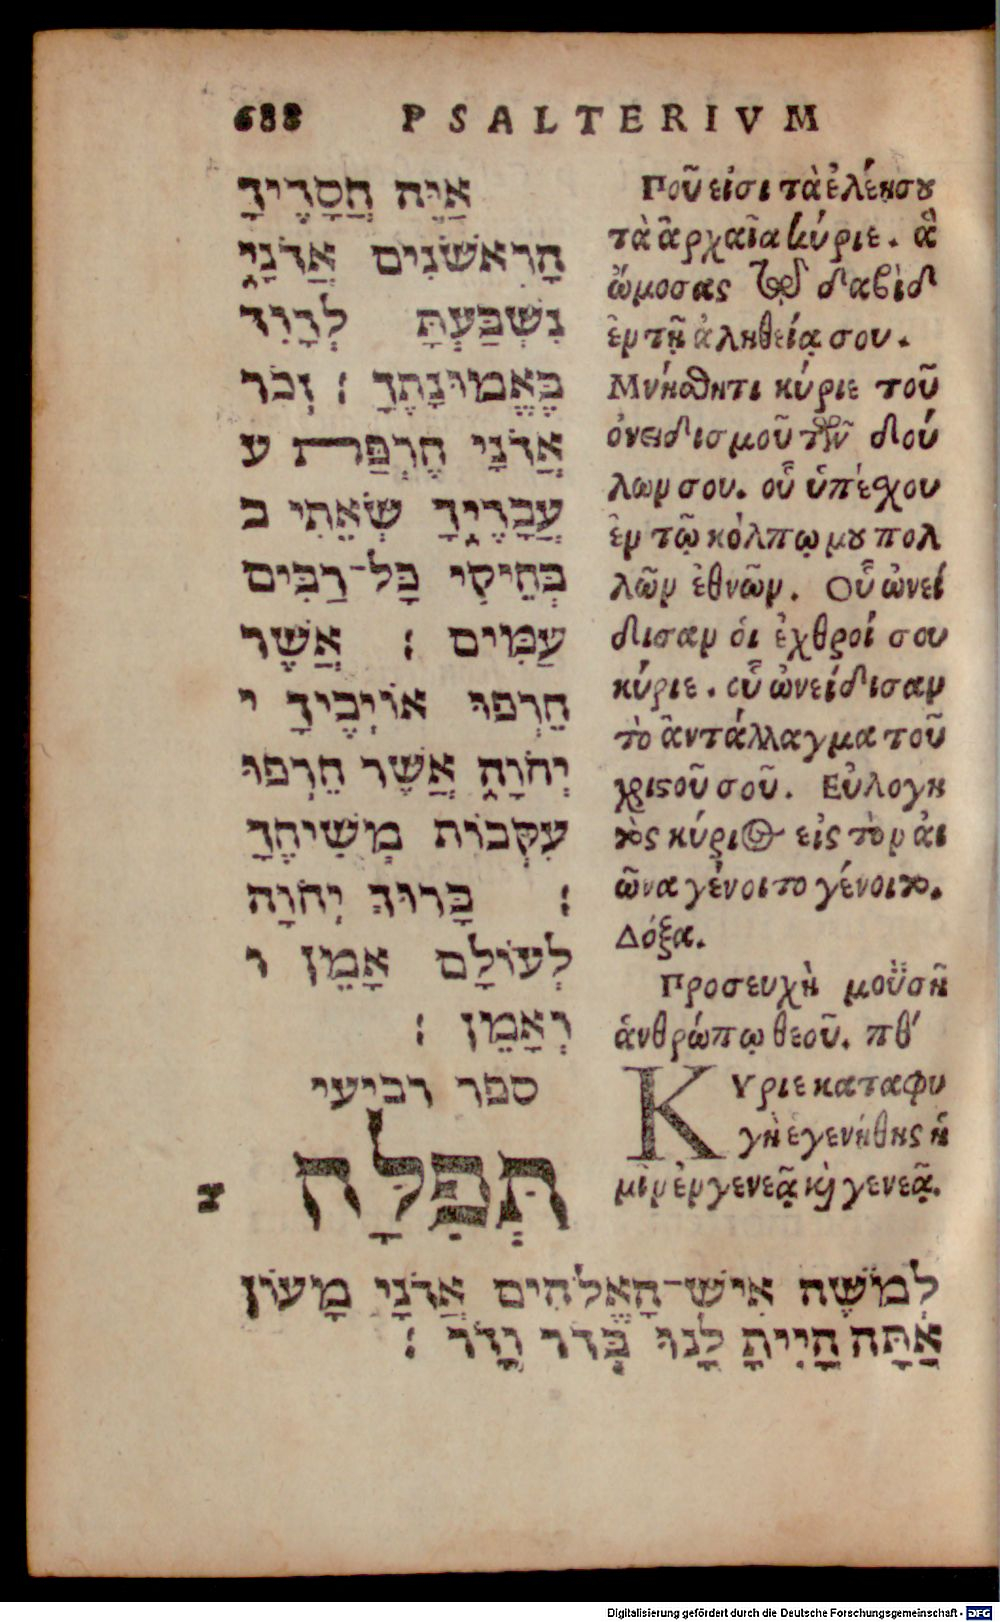 688 PSALTERIVM
אַיֵּה חֲסָדֶיךָ
הָרִאשֹׁנִים אֲדֹנָי
נִשְׁבַּעְתָּ לְדָוִד
בֶּאֱמוּנָתֶךָ : זְכֹר
אֲדֹנָי חֶרְפַּת ע
עֲבָדֶיךָ שְׂאֵתִי ב
בְּחֵיקִי כָּל־רַבִּים
עַמִּים : אֲשֶׁר
חֵרְפוּ אוֹיְבֶיךָ י
יְהֹוָה אֲשֶׁר חֵרְפוּ
עִקְּבוֹת מְשִׁיחֶךָ
: בָּרוּךְ יְהֹוָה
לְעוֹלָם אָמֵן ו
וְאָמֵן :
ספר רביעי
צ תְּפִלָּה
Ποῦ εἰσι τὰ ἐλέη σου
τὰ ἀρχαῖα κύριε. ἃ
ὤμοσας τῷ δαβὶδ
ἐν τῇ ἀληθείᾳ σου.
Μνήσθητι κύριε τοῦ
ὀνειδισμοῦ τῶν δού
λων σου. οὗ ὑπέσχον
ἐν τῷ κόλπῳ μου πολ
λῶν ἐθνῶν. Οὗ ὠνεί
δισαν οἱ ἐχθροί σου
κύριε. οὗ ὠνείδισαν
τὸ ἀντάλλαγμα τοῦ
χριστοῦ σοῦ. Εὐλογη
τὸς κύριος εἰς τὸν αἰ
ῶνα γένοιτο γένοιτο.
Δόξα.
Προσευχὴ μοϋσῆ
ἀνθρώπῳ θεοῦ. πθ΄
ΚΥριε καταφυ
γὴ ἐγενήθης ἡ
μῖν ἐν γενεᾷ καὶ γενεᾷ.
לְמֹשֶׁה אִישׁ־הָאֱלֹהִים אֲדֹנָי מָעוֹן
אַתָּה הָיִיתָ לָנוּ בְּדֹר וָדֹר :
Digitalisierung gefördert durch die Deutsche Forschungsgemeinschaft - DFG